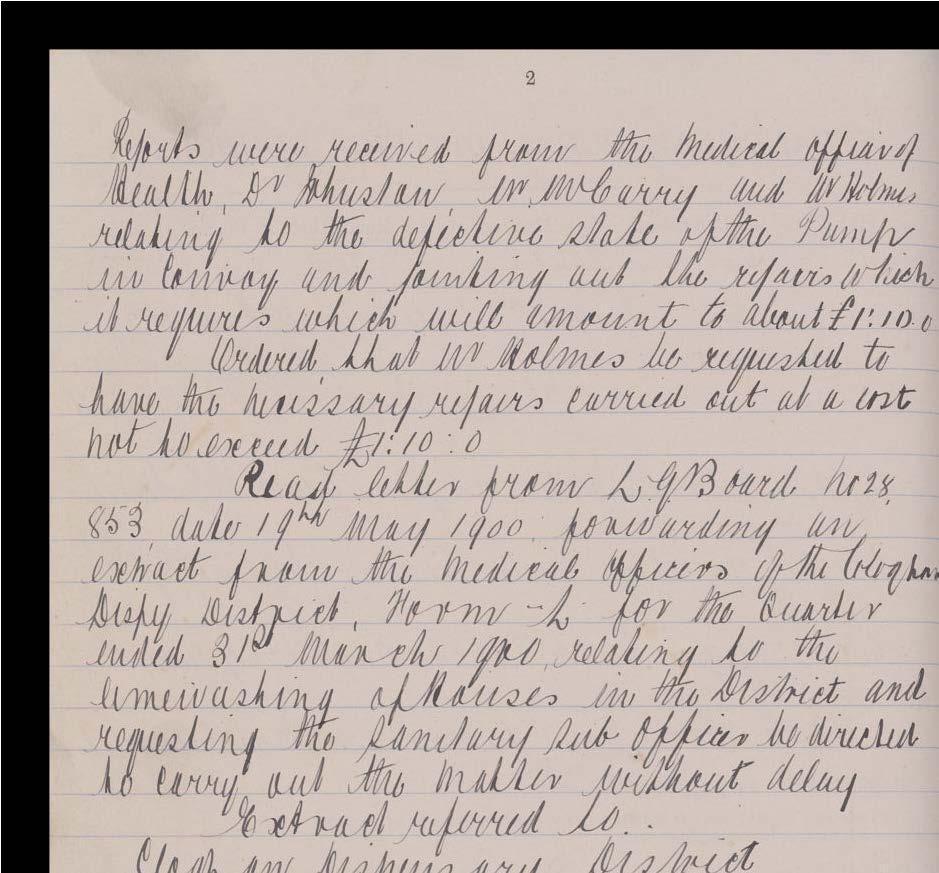 2
Reports were received from the Medical officer of
Health, Dr Johnston, Mr McCarry and Mr Holmes
relating to the defective state of the Pump
in Convoy and pointing out the repairs which
it requires which will amount to about £1:10.0
Ordered that Mr Holmes be requested to
have the necessary repairs carried out at a cost
not to exceed £1:10:0
Read letter from L G Board No 28
853, date 19th May 1900 forwarding an
extract from the Medical Officers of the Cloghan
Dispy District, Form - L for the Quarter
ended 31st March 1900, relating to the
limewashing of Houses in the District and
requesting the sanitary sub officer be directed
to carry out the matter without delay
Extract referred to.
Cloghan Dispensary District